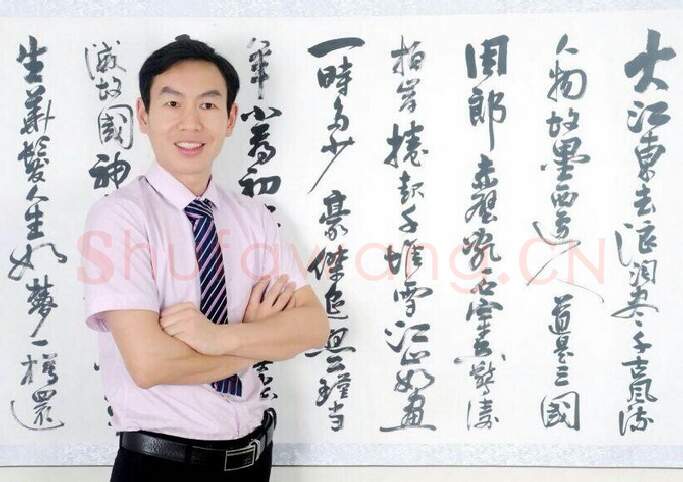 大江東去浪淘尽千古風流
人物故壘西邊人道是三國
周郎赤壁乱石雲驚濤
拍岸捲起千堆雪江山如畫
一時多少豪傑遙想公瑾当
年小喬初
故國神
生華髮人生如夢一樽還
Shufawang.CN